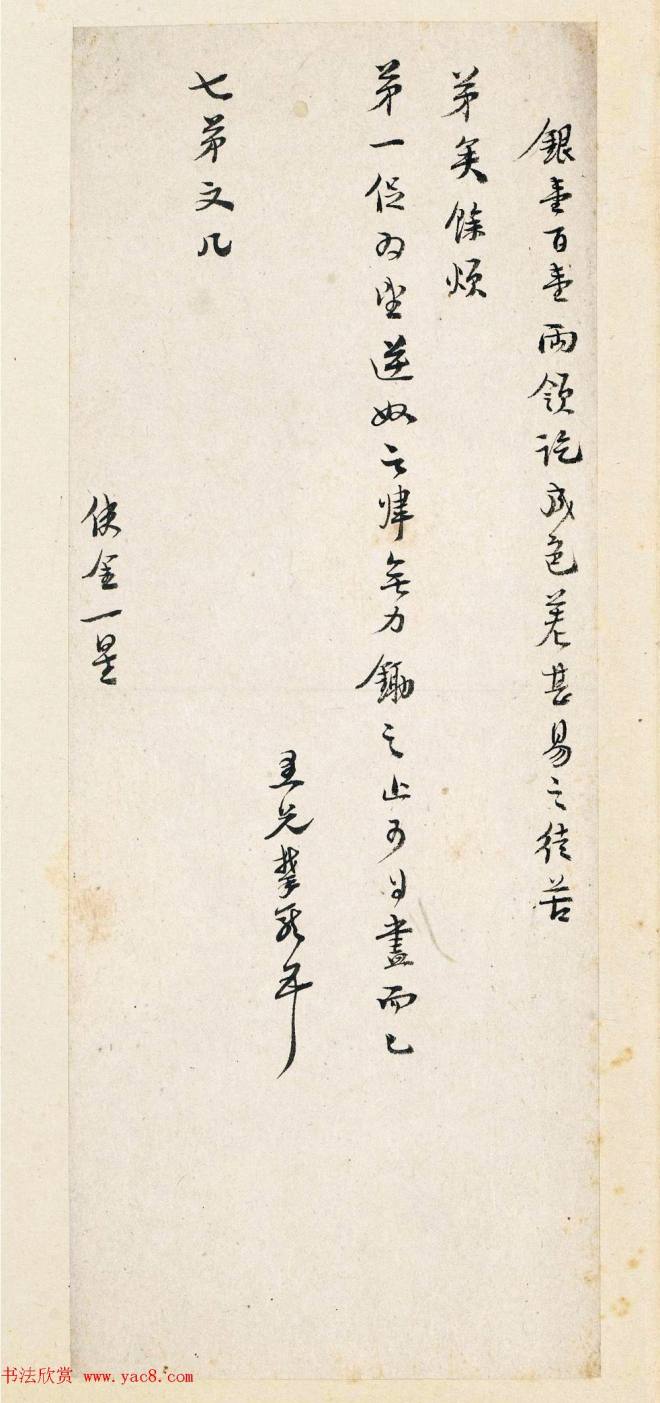 銀壹百壹兩領訖成色差甚易之徒苦
弟矣餘煩
弟一促為望逆奴言煒無力鋤之止可自盡而已
王兄頓首
七弟文几
使金一星
书法欣赏 www.yac8.com